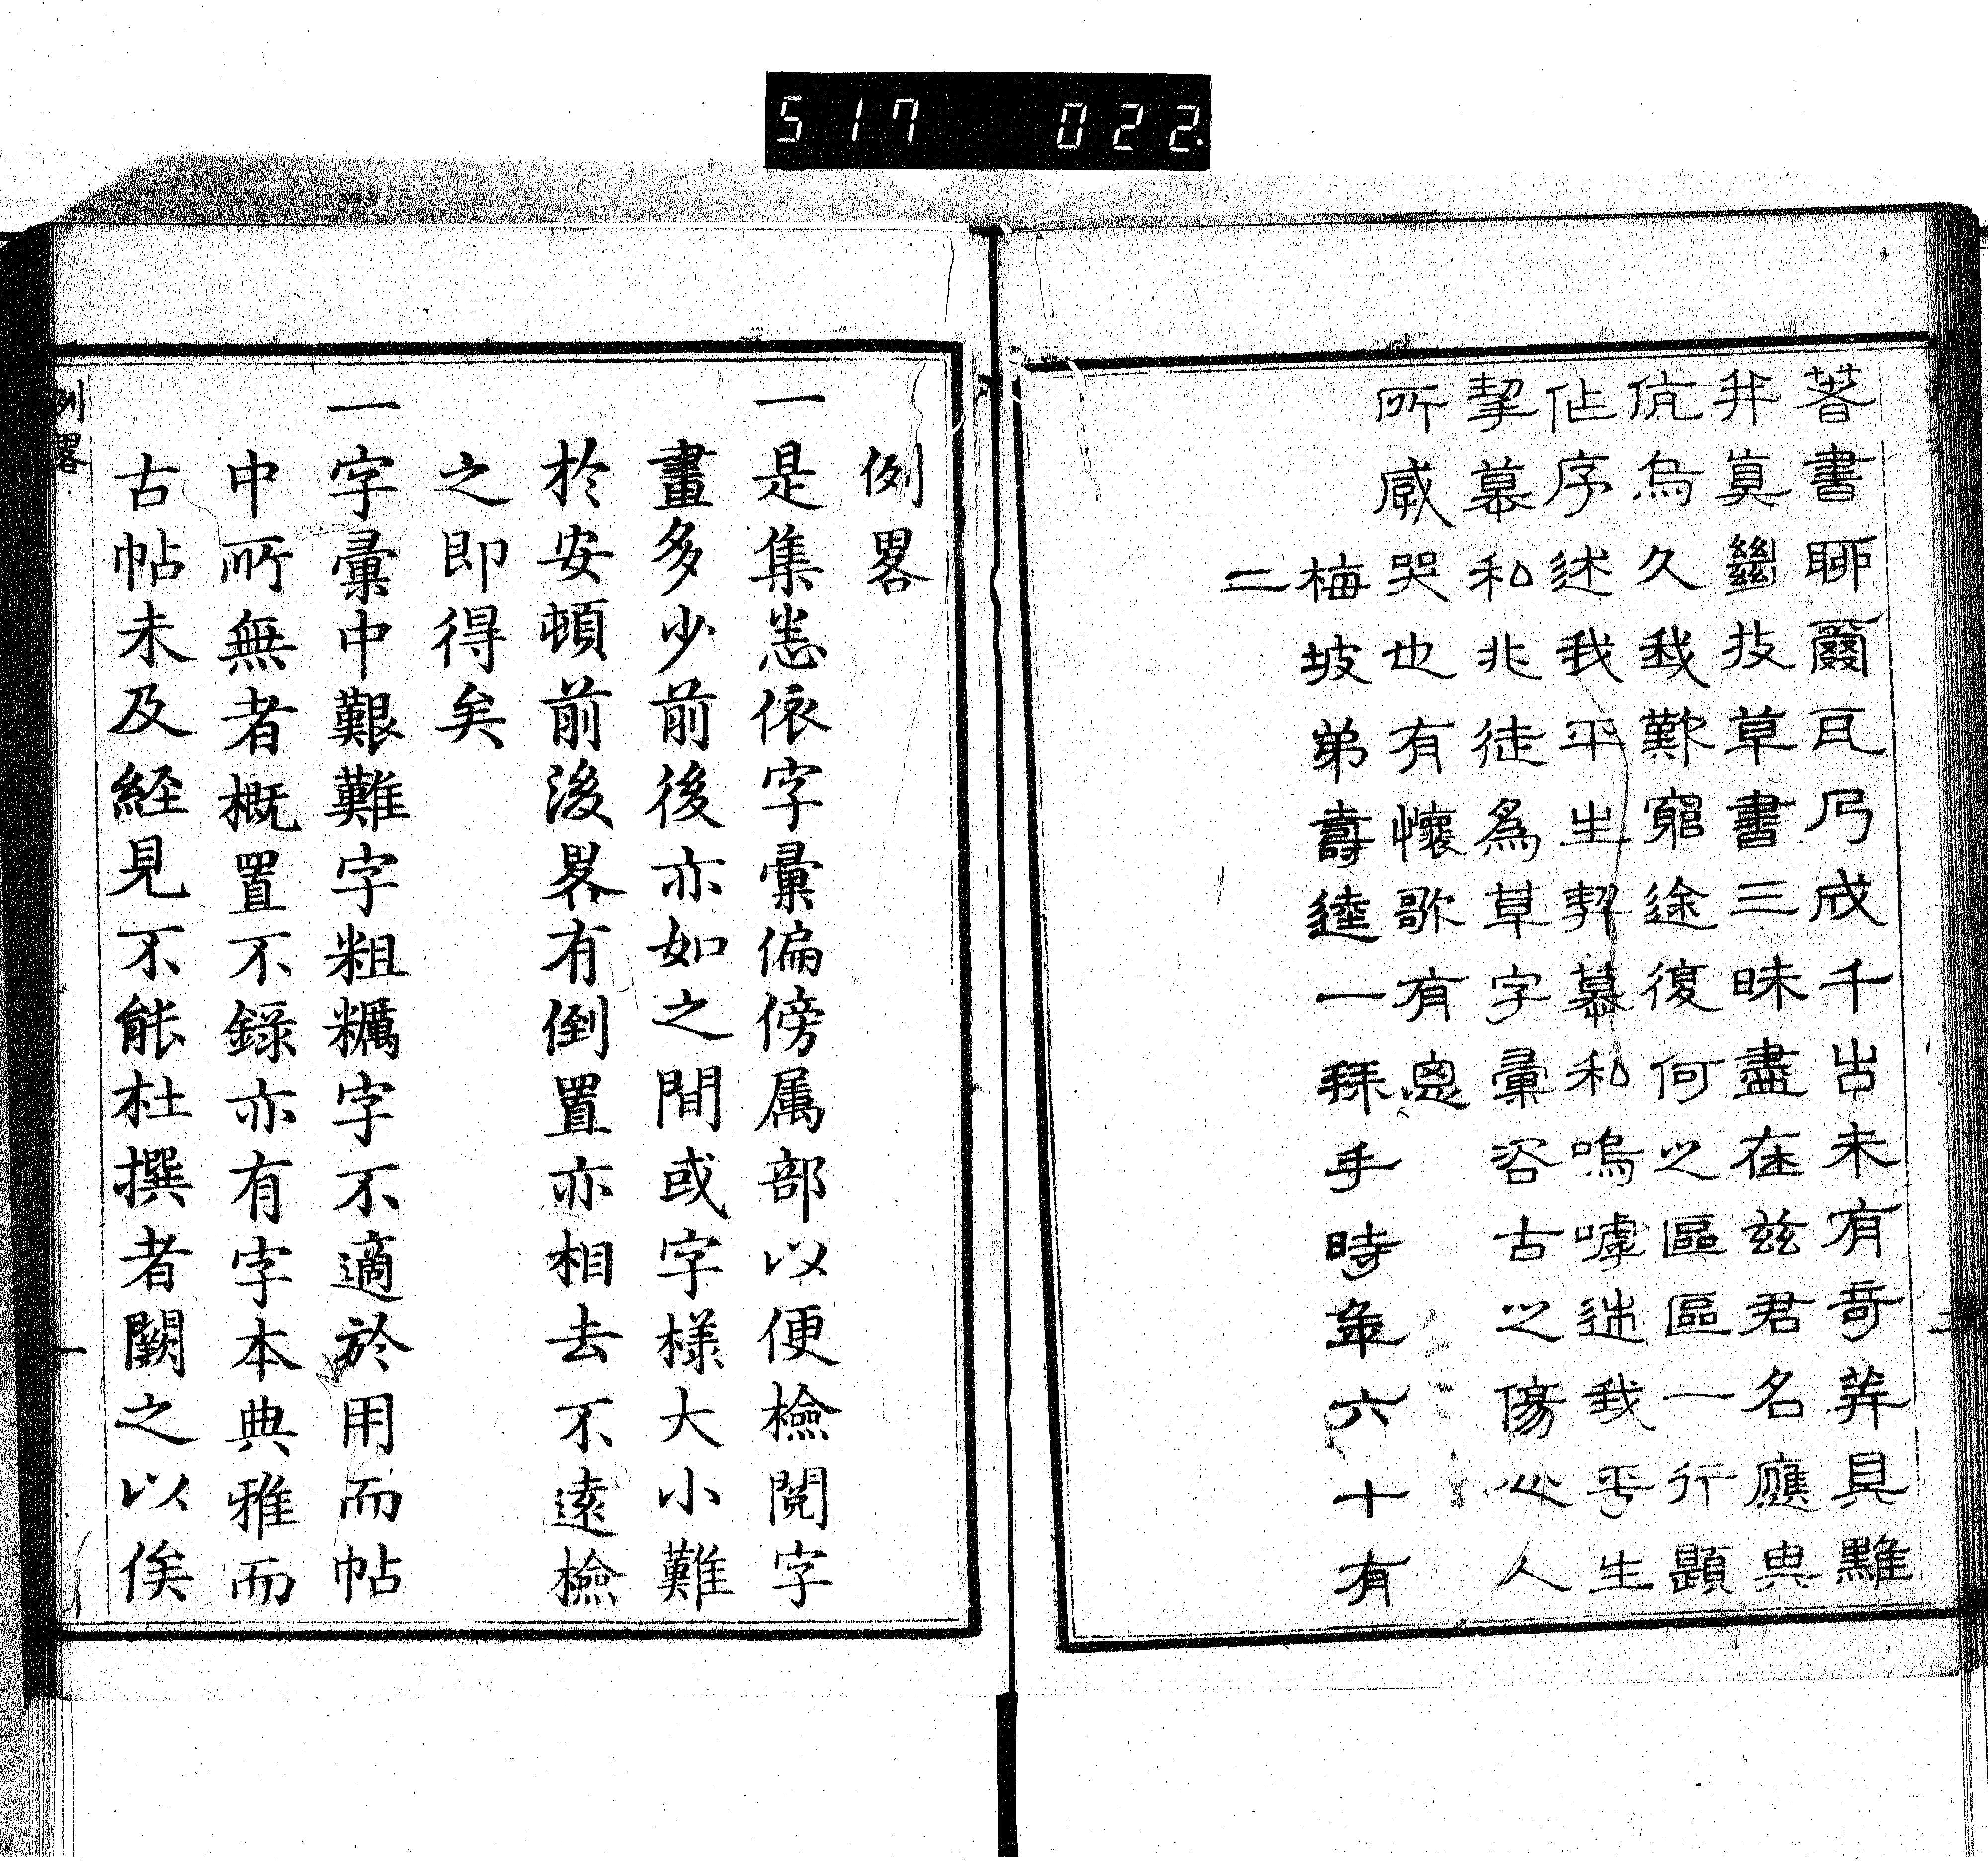 517 022
著書聊爾瓦乃成千古未有奇葬具雖
幷真茲技草書三昧盡在茲君名應典
伉為久我歎窮途復何之區區一行題
作序述我平生契慕和嗚嘑迷我乎生
挈慕和兆徒為草字彙咨古之傷心人
所感哭也有懷歌有恩
梅坡弟壽逵一拜手時年六十有
二
例畧
一是集悉依字彙偏傍属部以便檢閱字
畫多少前後亦如之間或字様大小難
於安頓前後畧有倒置亦相去不遠檢
之即得矣
一字彙中艱難字粗糲字不適於用而帖
中所無者概置不錄亦有字本典雅而
古帖未及経見不能杜撰者闕之以俟
例畧
一